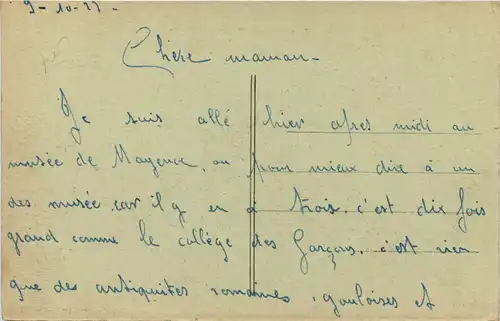 9-10-27-
Chère maman-
Je suis allé hier apres midi au
musée de Mayence, ou pour mieux dire à un
des musée car il y en a trois. c'est dix fois
grand comme le collège des Garçons. c'est rien
que des antiquites romaines, gauloises et